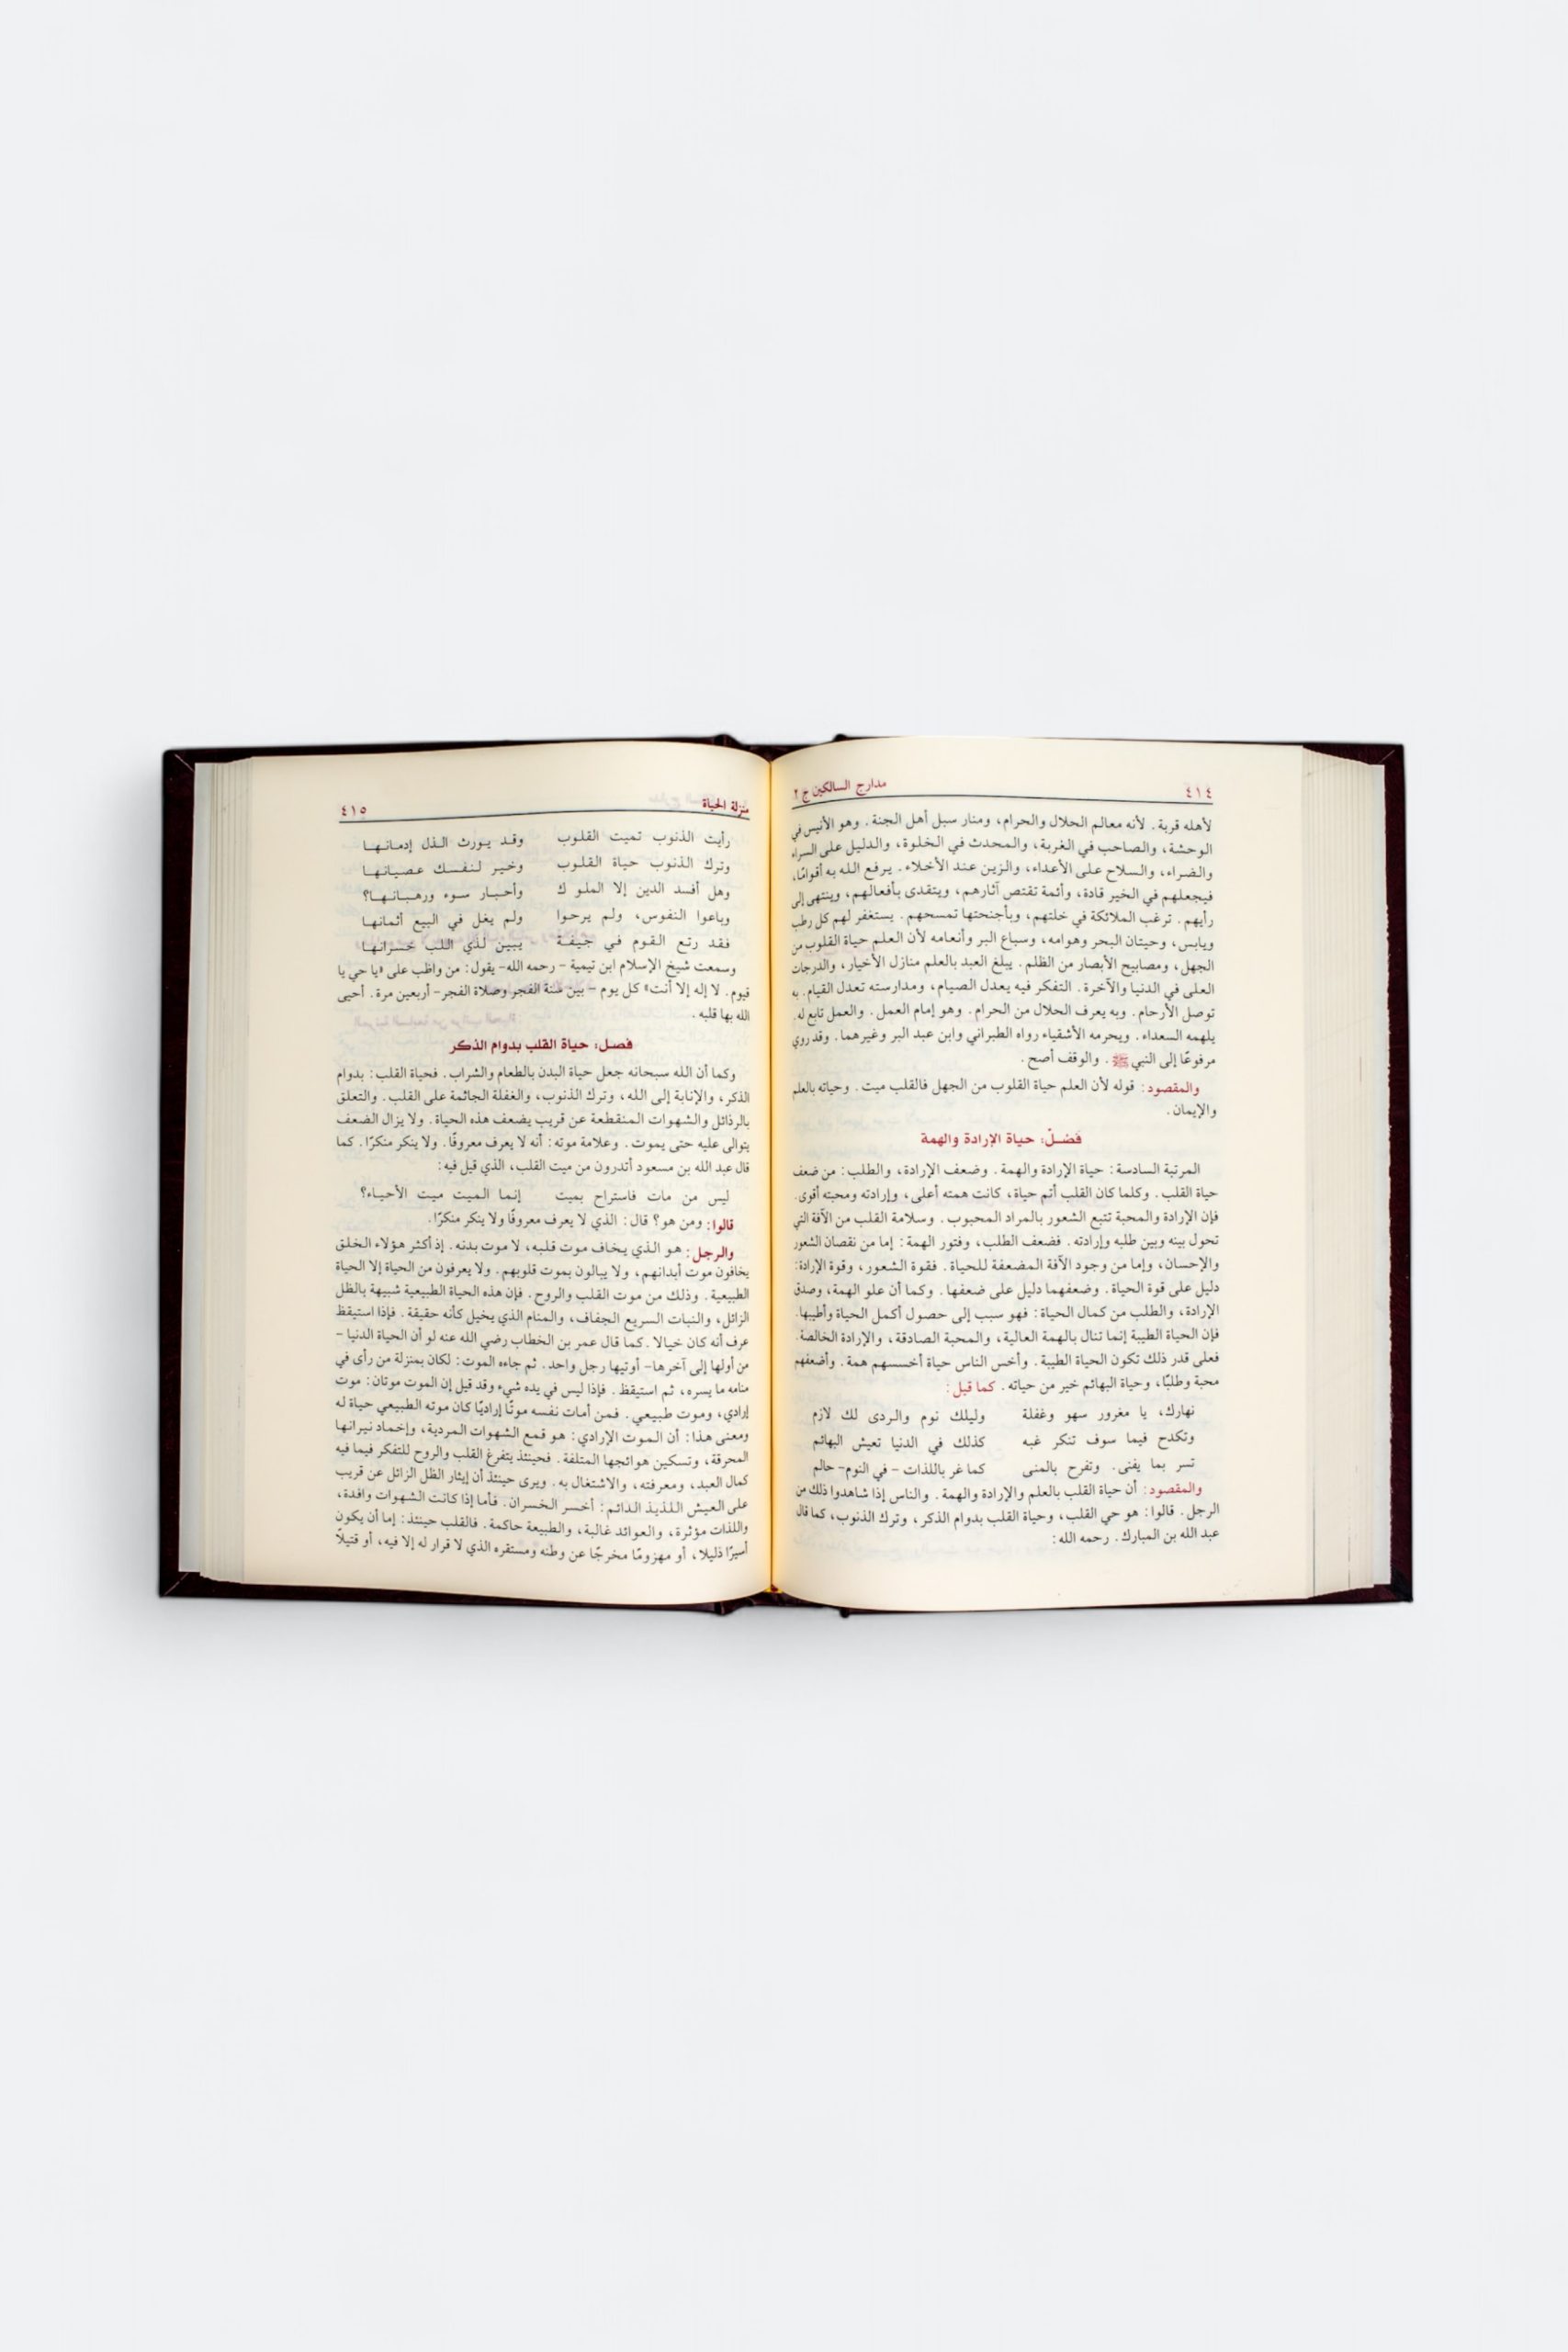 ٤١٤ مدارج السالكين ج ٢
لأهله قربة . لأنه معالم الحلال والحرام، ومنار سبل أهل الجنة . وهو الأنيس في
الوحشة، والصاحب في الغربة، والمحدث في الخلوة، والدليل على السراء
والضراء، والسلاح على الأعداء، والزين عند الأخلاء . يرفع الله به أقوامًا،
فيجعلهم في الخير قادة، وأئمة تقتص آثارهم، ويقتدى بأفعالهم، وينتهى إلى
رأيهم . ترغب الملائكة في خلتهم، وبأجنحتها تمسحهم . يستغفر لهم كل رطب
ويابس، وحيتان البحر وهوامه، وسباع البر وأنعامه لأن العلم حياة القلوب من
الجهل، ومصابيح الأبصار من الظلم . يبلغ العبد بالعلم منازل الأخيار، والدرجات
العلى في الدنيا والآخرة . التفكر فيه يعدل الصيام، ومدارسته تعدل القيام . به
توصل الأرحام . وبه يعرف الحلال من الحرام . وهو إمام العمل . والعمل تابع له .
يلهمه السعداء . ويحرمه الأشقياء رواه الطبراني وابن عبد البر وغيرهما . وقد روي
مرفوعًا إلى النبي ﷺ . والوقف أصح .
والمقصود : قوله لأن العلم حياة القلوب من الجهل فالقلب ميت . وحياته بالعلم
والإيمان .
فَصْلٌ: حياة الإرادة والهمة
المرتبة السادسة : حياة الإرادة والهمة . وضعف الإرادة، والطلب : من ضعف
حياة القلب . وكلما كان القلب أتم حياة، كانت همته أعلى، وإرادته ومحبته أقوى .
فإن الإرادة والمحبة تتبع الشعور بالمراد المحبوب . وسلامة القلب من الآفة التي
تحول بينه وبين طلبه وإرادته . فضعف الطلب، وفتور الهمة : إما من نقصان الشعور
والإحسان، وإما من وجود الآفة المضعفة للحياة . فقوة الشعور، وقوة الإرادة :
دليل على قوة الحياة . وضعفهما دليل على ضعفها . وكما أن علو الهمة، وصدق
الإرادة، والطلب من كمال الحياة : فهو سبب إلى حصول أكمل الحياة وأطيبها .
فإن الحياة الطيبة إنما تنال بالهمة العالية، والمحبة الصادقة، والإرادة الخالصة .
فعلى قدر ذلك تكون الحياة الطيبة . وأخس الناس حياة أخسسهم همة . وأضعفهم
محبة وطلبًا، وحياة البهائم خير من حياته . كما قيل :
نهارك، يا مغرور سهو وغفلة وليلك نوم والردى لك لازم
وتكدح فيما سوف تنكر غبه كذلك في الدنيا تعيش البهائم
تسر بما يفنى . وتفرح بالمنى كما غر باللذات – في النوم – حالم
والمقصود : أن حياة القلب بالعلم والإرادة والهمة . والناس إذا شاهدوا ذلك من
الرجل . قالوا : هو حي القلب، وحياة القلب بدوام الذكر، وترك الذنوب، كما قال
عبد الله بن المبارك . رحمه الله :
منزلة الحياة ٤١٥
رأيت الذنوب تميت القلوب وقد يورث الذل إدمانها
وترك الذنوب حياة القلوب وخير لنفسك عصيانها
وهل أفسد الدين إلا الملو ك وأحبار سوء ورهبانها؟
وباعوا النفوس، ولم يرحوا ولم يغل في البيع أثمانها
فقد رتع القوم في جيفة يبين لذي اللب خسرانها
وسمعت شيخ الإسلام ابن تيمية – رحمه الله – يقول : من واظب على «يا حي يا
قيوم . لا إله إلا أنت» كل يوم – بين سنة الفجر وصلاة الفجر – أربعين مرة . أحيى
الله بها قلبه .
فصل: حياة القلب بدوام الذكر
وكما أن الله سبحانه جعل حياة البدن بالطعام والشراب . فحياة القلب : بدوام
الذكر، والإنابة إلى الله، وترك الذنوب، والغفلة الجاثمة على القلب . والتعلق
بالرذائل والشهوات المنقطعة عن قريب يضعف هذه الحياة . ولا يزال الضعف
يتوالى عليه حتى يموت . وعلامة موته : أنه لا يعرف معروفًا . ولا ينكر منكرًا . كما
قال عبد الله بن مسعود أتدرون من ميت القلب، الذي قيل فيه :
ليس من مات فاستراح بميت إنما الميت ميت الأحياء؟
قالوا : ومن هو؟ قال : الذي لا يعرف معروفًا ولا ينكر منكرًا .
والرجل : هو الذي يخاف موت قلبه، لا موت بدنه . إذ أكثر هؤلاء الخلق
يخافون موت أبدانهم، ولا يبالون بموت قلوبهم . ولا يعرفون من الحياة إلا الحياة
الطبيعية . وذلك من موت القلب والروح . فإن هذه الحياة الطبيعية شبيهة بالظل
الزائل، والنبات السريع الجفاف، والمنام الذي يخيل كأنه حقيقة . فإذا استيقظ
عرف أنه كان خيالا . كما قال عمر بن الخطاب رضي الله عنه لو أن الحياة الدنيا –
من أولها إلى آخرها – أوتيها رجل واحد . ثم جاءه الموت : لكان بمنزلة من رأى في
منامه ما يسره، ثم استيقظ . فإذا ليس في يده شيء وقد قيل إن الموت موتان : موت
إرادي، وموت طبيعي . فمن أمات نفسه موتًا إراديًا كان موته الطبيعي حياة له
ومعنى هذا : أن الموت الإرادي : هو قمع الشهوات المردية، وإخماد نيرانها
المحرقة، وتسكين هوائجها المتلفة . فحينئذ يتفرغ القلب والروح للتفكر فيما فيه
كمال العبد، ومعرفته، والاشتغال به . ويرى حينئذ أن إيثار الظل الزائل عن قريب
على العيش اللذيذ الدائم : أخسر الخسران . فأما إذا كانت الشهوات وافدة،
واللذات مؤثرة، والعوائد غالبة، والطبيعة حاكمة . فالقلب حينئذ : إما أن يكون
أسيرًا ذليلا، أو مهزومًا مخرجًا عن وطنه ومستقره الذي لا قرار له إلا فيه، أو قتيلًا